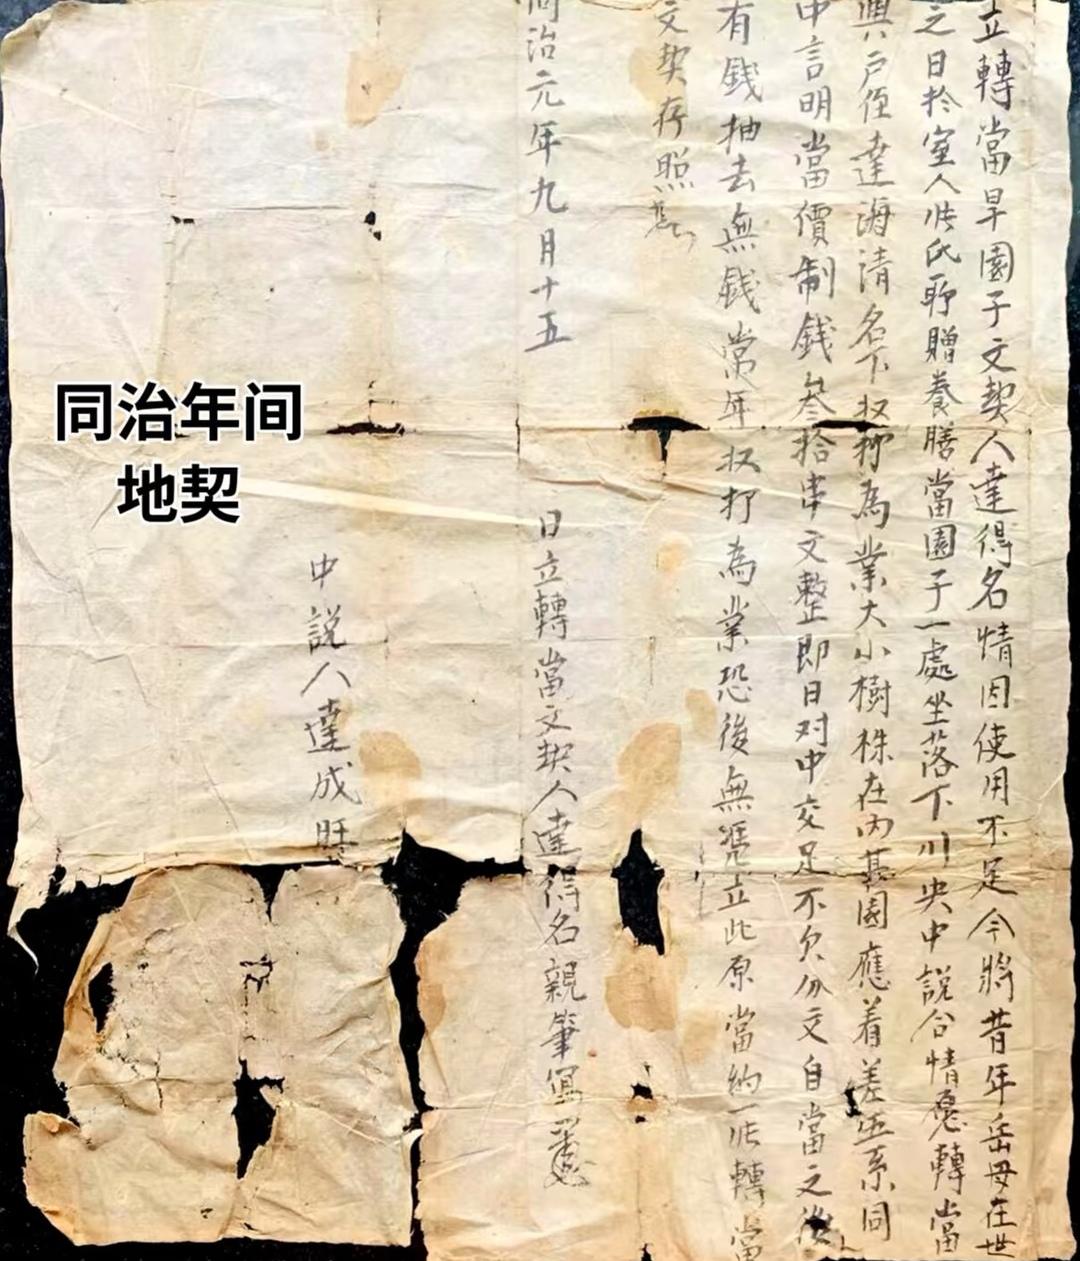 立轉當旱園子文契人達得名情因使用不足今將昔年岳母在世
之日於室人張氏所贈養膳當園子一處坐落下川央中說合情愿轉當
與戶侄達海清名下收耕為業大小樹株在內其園應着差伍系同
中言明當價制錢叁拾串文整即日对中交足不欠分文自當之後
有錢抽去無錢常年收耕為業恐後無憑立此原當約一張轉當
文契存照
同治元年九月十五日立轉當文契人達得名親筆寫
中說人達成旺
同治年间
地契